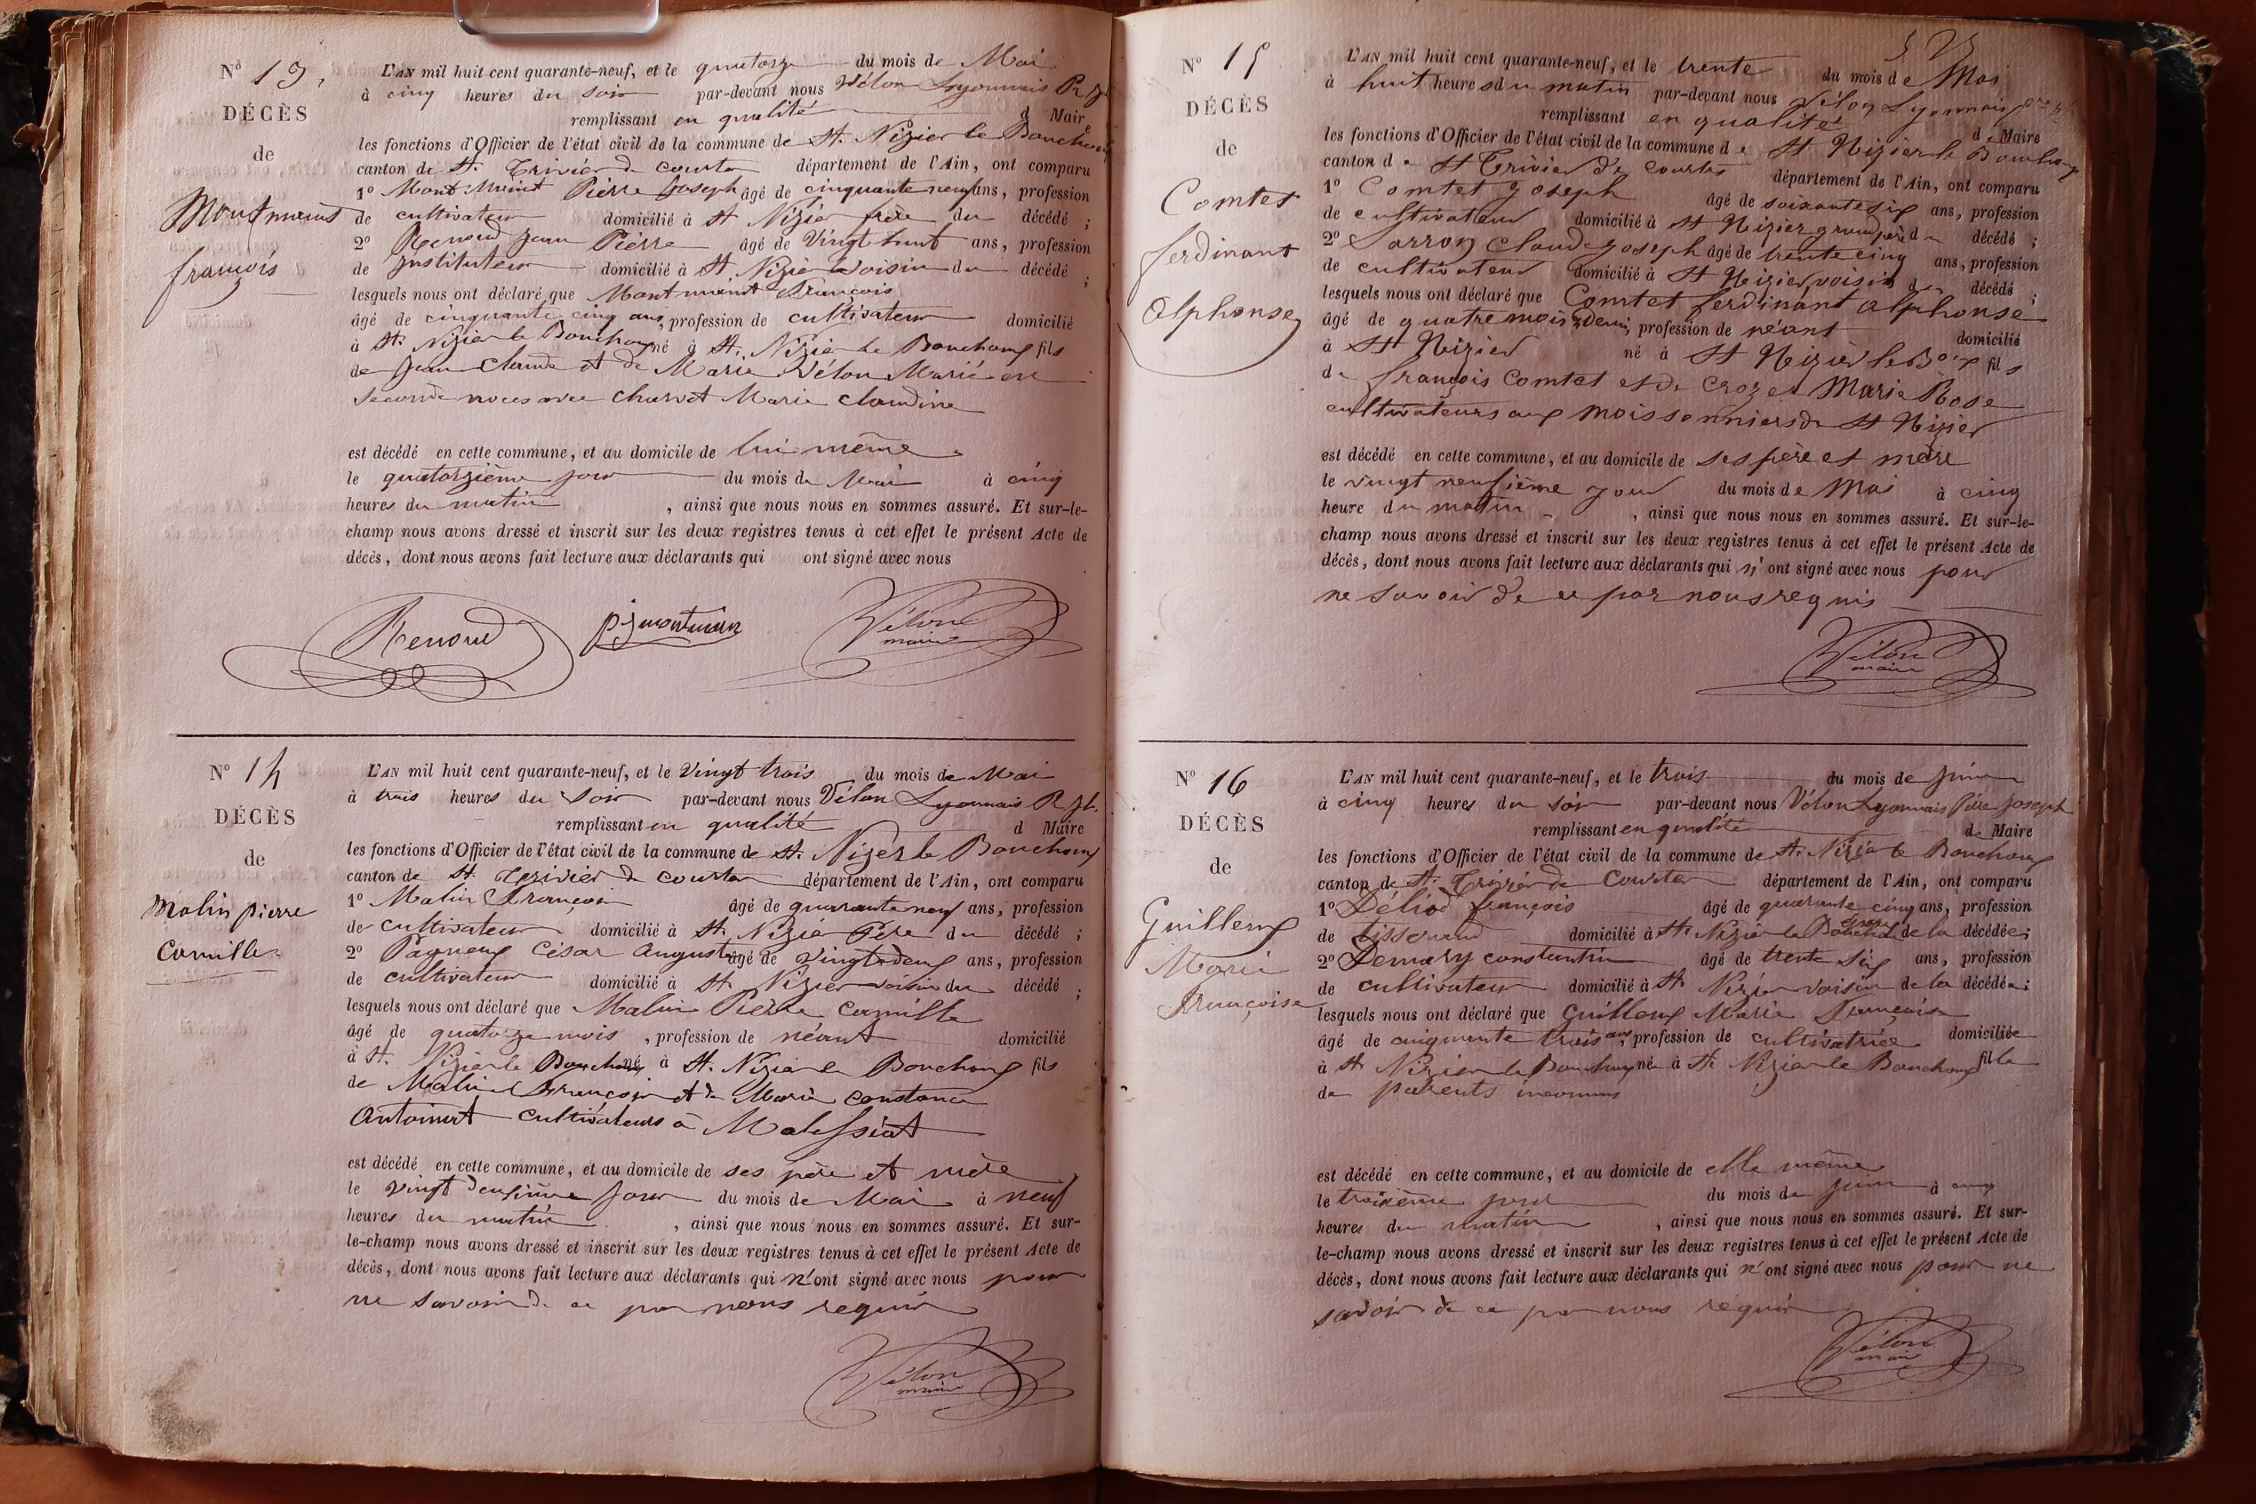 Nº 13.
DÉCÈS
de
Montmeint
françois
L'AN mil huit cent quarante-neuf, et le quatorze du mois de Mai
à cinq heures du soir par-devant nous Vélon Lyonnais
remplissant en qualité d Maire
les fonctions d'Officier de l'état civil de la commune de St. Nizier le Bouchoux
canton de St. Trivier de courtes département de l'Ain, ont comparu
1º Mont-meint Pierre Joseph âgé de cinquante neuf ans, profession
de cultivateur domicilié à St Nizier frère du décédé ;
2º Renoud Jean Pierre âgé de vingt huit ans, profession
de Instituteur domicilié à St. Nizier voisin du décédé ;
lesquels nous ont déclaré que Montmeint François
âgé de cinquante cinq ans, profession de cultivateur domicilié
à St. Nizier le Bouchoux né à St. Nizier le Bouchoux fils
de Jean Claude et de Marie Vélon Marié en
seconde noces avec Charvet Marie Claudine
est décédé en cette commune, et au domicile de lui même
le quatorzième jour du mois de Mai à cinq
heures du matin , ainsi que nous nous en sommes assuré. Et sur-le-
champ nous avons dressé et inscrit sur les deux registres tenus à cet effet le présent Acte de
décès, dont nous avons fait lecture aux déclarants qui ont signé avec nous
Renoud pjmontmein Vélon
maire
Nº 14
DÉCÈS
de
Malin pierre
Camille
L'AN mil huit cent quarante-neuf, et le vingt trois du mois de Mai
à trois heures du soir par-devant nous Vélon Lyonnais
remplissant en qualité d Maire
les fonctions d'Officier de l'état civil de la commune de St. Nizier le Bouchoux
canton de St. Trivier de courtes département de l'Ain, ont comparu
1º Malin François âgé de quarante neuf ans, profession
de cultivateur domicilié à St. Nizier Père du décédé ;
2º Pagneux César Auguste âgé de vingt-deux ans, profession
de cultivateur domicilié à St. Nizier voisin du décédé ;
lesquels nous ont déclaré que Malin Pierre Camille
âgé de quatorze mois , profession de néant domicilié
à St. Nizier le Bouchoux né à St. Nizier le Bouchoux fils
de Malin François et de Marie Constance
Antoinert cultivateurs à Malessiat
est décédé en cette commune, et au domicile de ses père et mère
le vingt deuxième jour du mois de Mai à neuf
heures du matin , ainsi que nous nous en sommes assuré. Et sur-
le-champ nous avons dressé et inscrit sur les deux registres tenus à cet effet le présent Acte de
décès, dont nous avons fait lecture aux déclarants qui n'ont signé avec nous pour
ne savoir de ce par nous requis
Vélon
maire
Nº 15
DÉCÈS
de
Comtet
ferdinant
Alphonse
L'AN mil huit cent quarante-neuf, et le trente du mois de Mai
à huit heures du matin par-devant nous Vélon Lyonnais
remplissant en qualité de Maire
les fonctions d'Officier de l'état civil de la commune de St Nizier le Bouchoux
canton de St Trivier de Courtes département de l'Ain, ont comparu
1º Comtet Joseph âgé de soixante six ans, profession
de cultivateur domicilié à St Nizier grand père du décédé ;
2º Sarron Claude Joseph âgé de trente cinq ans, profession
de cultivateur domicilié à St Nizier voisin du décédé ;
lesquels nous ont déclaré que Comtet ferdinant alphonse
âgé de quatre mois & demi, profession de néant domicilié
à St Nizier né à St Nizier le Boux fils
de françois Comtet et de Crozet Marie Rose
cultivateurs aux Moissonniers de St Nizier
est décédé en cette commune, et au domicile de ses père et mère
le vingt neufième jour du mois de Mai à cinq
heure du matin , ainsi que nous nous en sommes assuré. Et sur-le-
champ nous avons dressé et inscrit sur les deux registres tenus à cet effet le présent Acte de
décès, dont nous avons fait lecture aux déclarants qui n'ont signé avec nous pour
ne savoir de ce par nous requis
Vélon
maire
Nº 16
DÉCÈS
de
Guilleux
Marie
Françoise
L'AN mil huit cent quarante-neuf, et le trois du mois de Juin
à cinq heures du soir par-devant nous Vélon Lyonnais Pierre Joseph
remplissant en qualité de Maire
les fonctions d'Officier de l'état civil de la commune de St. Nizier le Bouchoux
canton de St. Trivier de Courtes département de l'Ain, ont comparu
1º Déliod françois âgé de quarante cinq ans, profession
de tisserand domicilié à St. Nizier le Bouchoux époux de la décédée ;
2º Demary constantin âgé de trente six ans, profession
de cultivateur domicilié à St Nizier voisin de la décédée ;
lesquels nous ont déclaré que Guilleux Marie Françoise
âgé de cinquante trois ans, profession de cultivatrice domiciliée
à St Nizier le Bouchoux né à St Nizier le Bouchoux fille
de parents inconnus
est décédé en cette commune, et au domicile de elle même
le troisième jour du mois de Juin à cinq
heures du matin , ainsi que nous nous en sommes assuré. Et sur-
le-champ nous avons dressé et inscrit sur les deux registres tenus à cet effet le présent Acte de
décès, dont nous avons fait lecture aux déclarants qui n'ont signé avec nous pour ne
savoir de ce par nous requis
Vélon
maire